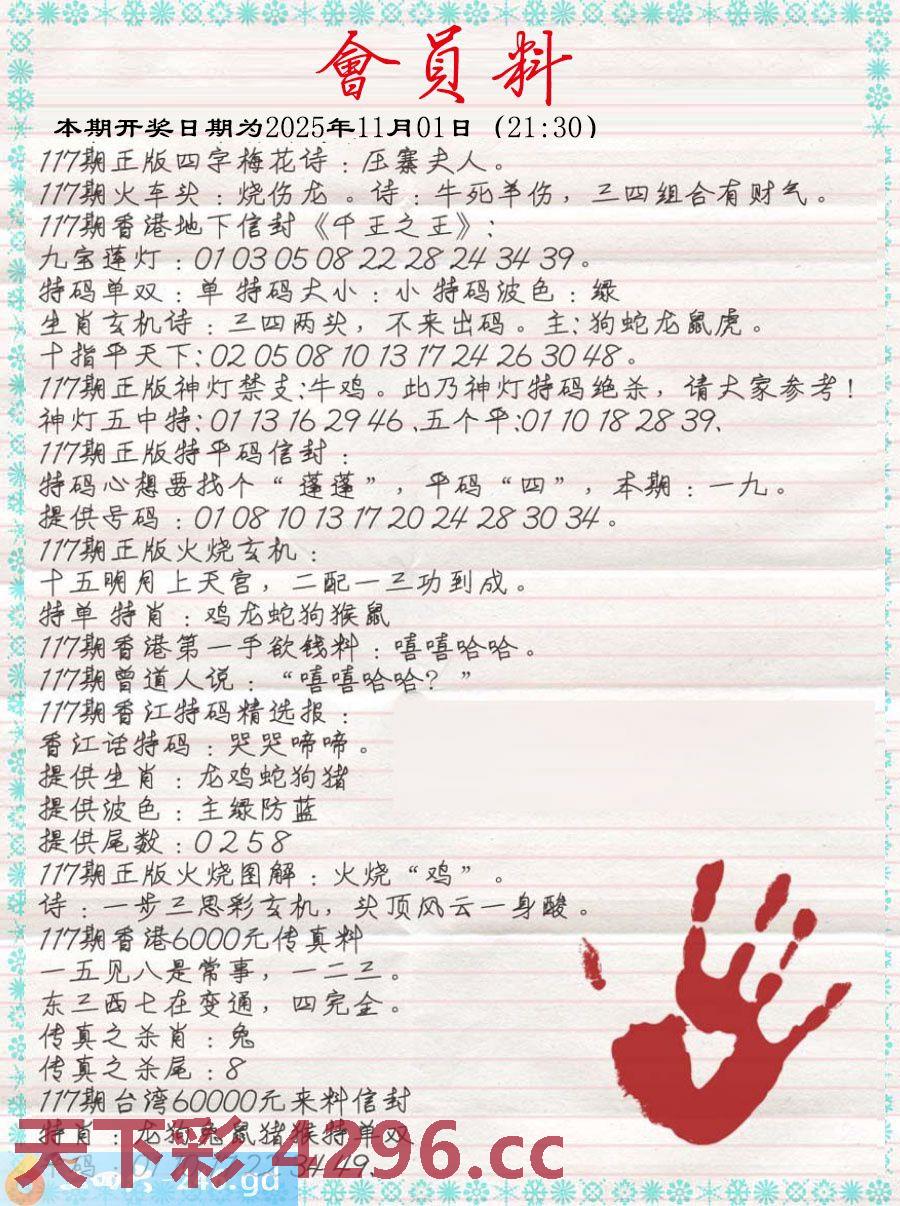 會員料
本期开奖日期为2025年11月01日（21:30）
117期正版四字梅花诗：压寨夫人。
117期火车头：烧伤龙 。诗：牛死羊伤，三四组合有财气。
117期香港地下信封《千王之王》:
九宝莲灯：01 03 05 08 22 28 24 34 39。
特码单双：单 特码大小：小 特码波色：绿
生肖玄机诗：三四两头，不来出码。主: 狗蛇龙鼠虎。
十指平天下: 02 05 08 10 13 17 24 26 30 48。
117期正版神灯禁支:牛鸡。此乃神灯特码绝杀，请大家参考！
神灯五中特: 01 13 16 29 46 、五个平:01 10 18 28 39、
117期正版特平码信封：
特码心想要找个“ 蓬蓬”，平码“四”，本期：一九。
提供号码：01 08 10 13 17 20 24 28 30 34。
117期正版火烧玄机：
十五明月上天宫，二配一三功到成。
特单 特肖：鸡龙蛇狗猴鼠
117期香港第一手欲钱料：嘻嘻哈哈。
117期曾道人说：“嘻嘻哈哈？”
117期香江特码精选报：
香江话特码：哭哭啼啼。
提供生肖：龙鸡蛇狗猪
提供波色：主绿防蓝
提供尾数：0 2 5 8
117期正版火烧图解：火烧“鸡”。
诗：一步三思彩玄机，头顶风云一身酸。
117期香港6000元传真料
一五见八是常事，一二三。
东三西七在变通，四完金。
传真之杀肖：兔
传真之杀尾：8
117期台湾60000元来料信封
特肖：龙狗兔鼠猪猴特单双
天下彩4296.cc
34 49、